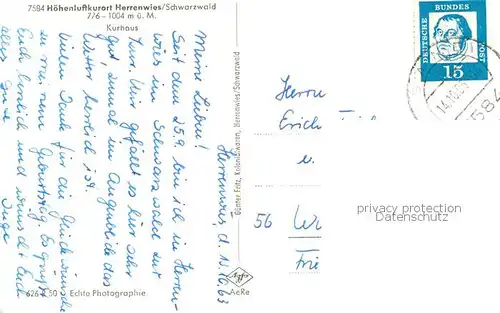 7584 Höhenluftkurort Herrenwies/Schwarzwald
776-1004 m ü. M.
Kurhaus
Herrenwies, d. 13.10.63
Meine Lieben!
Seit dem 25.9. bin ich in Herren-
wies im Schwarzwald zur
Kur. Mir gefällt es hier sehr
gut, zumal im Augenblick das
Wetter herrlich ist.
Vielen Dank für die Glückwünsche
zu meinem Geburtstag. Es grüßt
Euch herzlich und wünscht Euch
alles Gute
Inge
626 50 Echte Photographie
Günter Fritz, Kolonialwaren, Herrenwies/Schwarzwald
Agfa
AeRe
DEUTSCHE BUNDESPOST
15
14.10.63
7584
Herrn
Erich
u.
56
privacy protection
Datenschutz